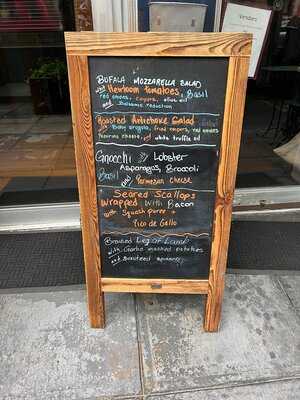 BUFALA MOZZARELLA SALAD
with Heirloom tomatoes, Basil
red onions, capers, olive oil
and Balsamic reduction
Roasted Artichoke Salad
with Baby arugula, fried capers, red onions
Pecorino cheese, and white truffle oil
Gnocchi Lobster
Asparagus, Broccoli
Basil and Parmesan cheese
Seared Scallops
Wrapped With Bacon
with Squash puree +
Pico de Gallo
Braised Leg of Lamb
with Garlic mashed potatoes
and Sauteed